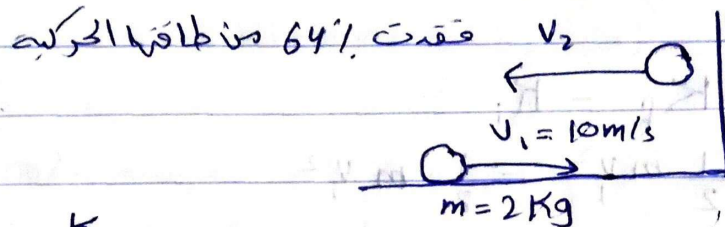 فقدت 64٪ من طاقتها الحركية
V₂
V₁ = 10 m/s
m = 2 Kg